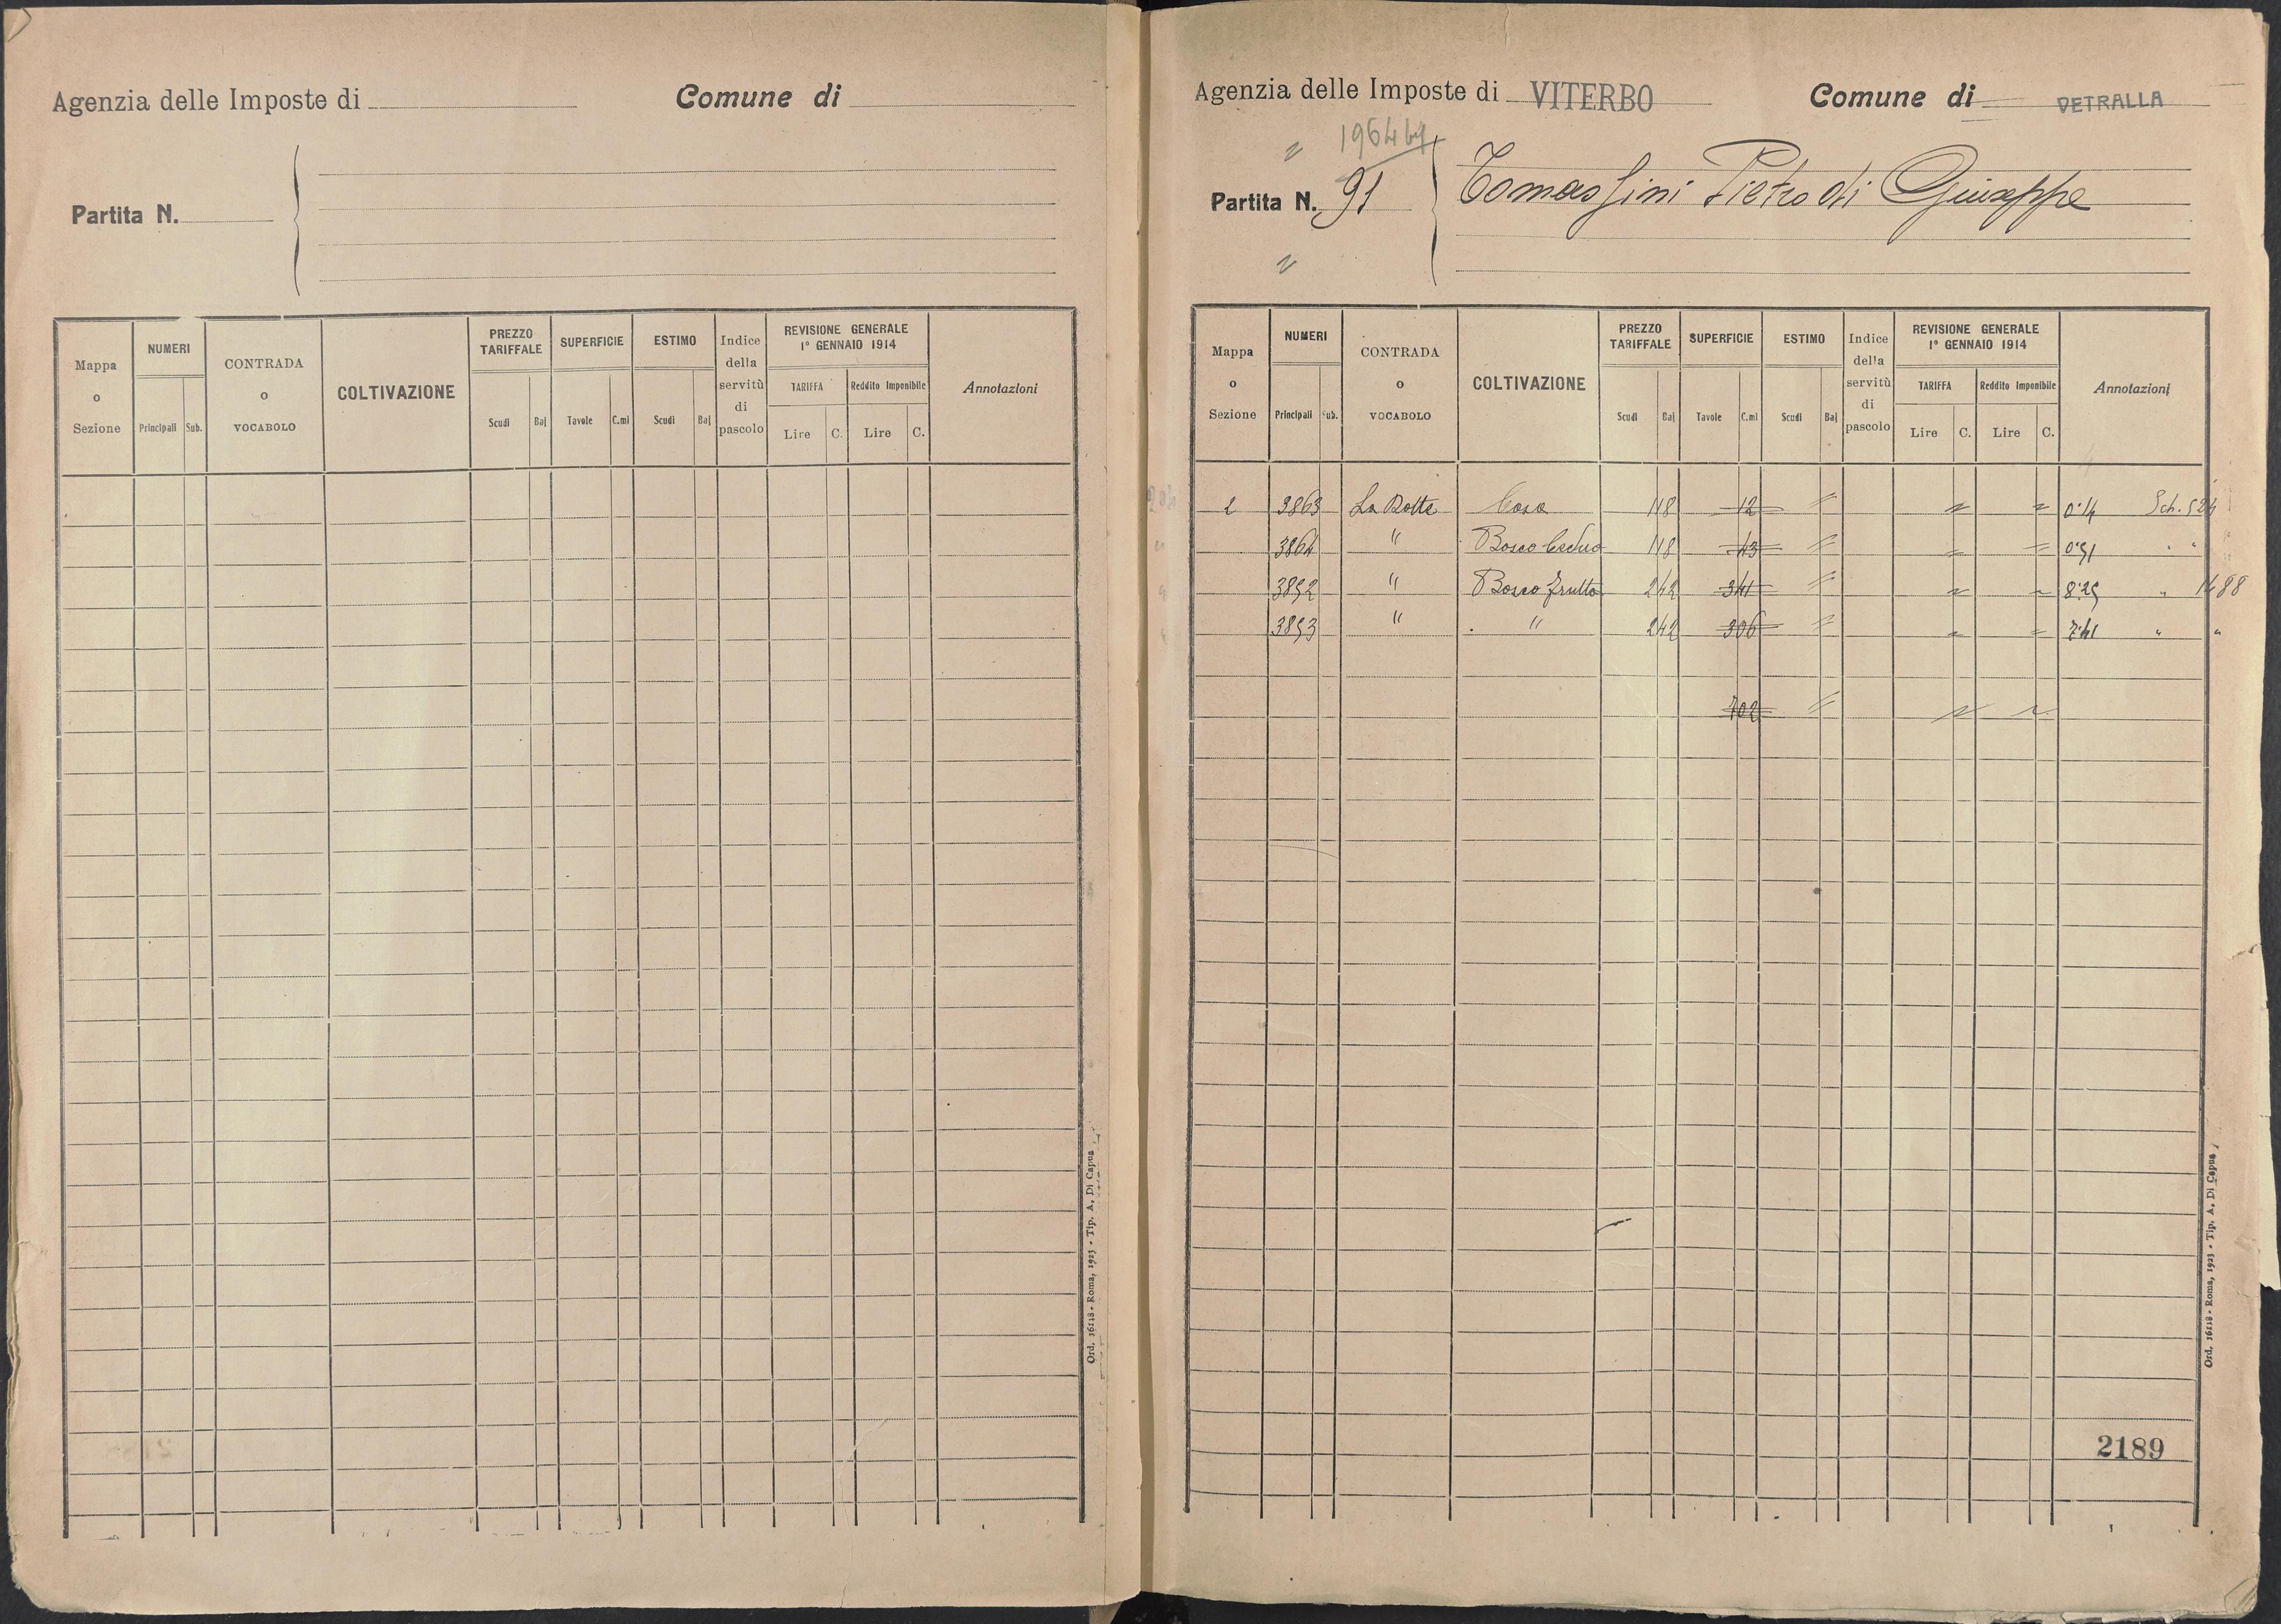 Agenzia delle Imposte di Comune di
Partita N.
Mappa o Sezione NUMERI Principali Sub. CONTRADA o VOCABOLO COLTIVAZIONE PREZZO TARIFFALE Scudi Baj SUPERFICIE Tavole C.mi ESTIMO Scudi Baj Indice della servitù di pascolo REVISIONE GENERALE 1° GENNAIO 1914 TARIFFA Lire C. Reddito Imponibile Lire C. Annotazioni
Ord. 16118 - Roma, 1923 - Tip. A. Di Capua
Agenzia delle Imposte di VITERBO Comune di VETRALLA
Partita N. 91 Tomassini Pietro di Giuseppe
Mappa o Sezione NUMERI Principali Sub. CONTRADA o VOCABOLO COLTIVAZIONE PREZZO TARIFFALE Scudi Baj SUPERFICIE Tavole C.mi ESTIMO Scudi Baj Indice della servitù di pascolo REVISIONE GENERALE 1° GENNAIO 1914 TARIFFA Lire C. Reddito Imponibile Lire C. Annotazioni
2 3863 La Botte Casa 148 12 0.14 Sch. 524
3864 " Bosco Ceduo 148 43 0.51 " "
3852 " Bosco frutto 242 341 8.25 " 1488
3853 " " 242 306 7.41 " "
702
2189
Ord. 16118 - Roma, 1923 - Tip. A. Di Capua